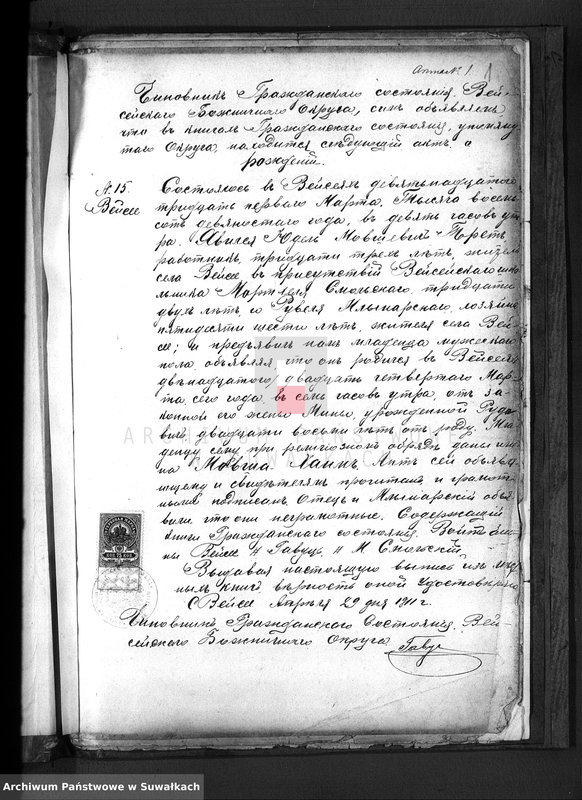 Аннекс 1
Чиновникъ Гражданскаго состоянія Вей-
сейскаго Божничнаго Округа, симъ объявляетъ,
что въ книгахъ Гражданскаго состоянія, упомяну
таго Округа, находится слѣдующій актъ о
рожденіи.
№ 15.
Вейсее
Состоялось въ Вейсеяхъ девятьнадцатаго
тридцать перваго Марта, Тысяча восемь
сотъ девяностаго года, въ девять часовъ ут
ра. Явился Юдель Мовшевичъ
работникъ, тридцати трехъ лѣтъ, житель
села Вейсее въ присутствіи Вейсейскаго
Смольскаго, тридцати
двухъ лѣтъ, и Рувеля Млынарскаго, хозяина
пятидесяти шести лѣтъ, жителя села Вей-
сее; и предъявилъ намъ младенца мужескаго
пола, объявляя что онъ родился въ Вейсеяхъ
двѣнадцатаго, двадцать четвертаго Мар-
та, сего года, въ семь часовъ утра, отъ за-
конной его жены Мины, урожденной Рудо-
вичъ двадцати восьми лѣтъ отъ роду. Мла-
денцу сему при религіозномъ обрядѣ дано имя
Мовша Хаимъ. Актъ сей объявля-
ющему и свидѣтелямъ прочитанъ и
подписанъ. Отецъ и Млынарскій объя-
вили что они неграмотные. Содержащій
книги Гражданскаго состоянія. Войтъ гми-
ны Вейсее
Выдавая настоящую выпись изъ
книгъ, вѣрность оной удостовѣряю
С. Вейсее Апрѣля 29 дня 1911 г.
Чиновникъ Гражданскаго Состоянія Вей-
сейскаго Божничнаго Округа
Archiwum Państwowe w Suwałkach